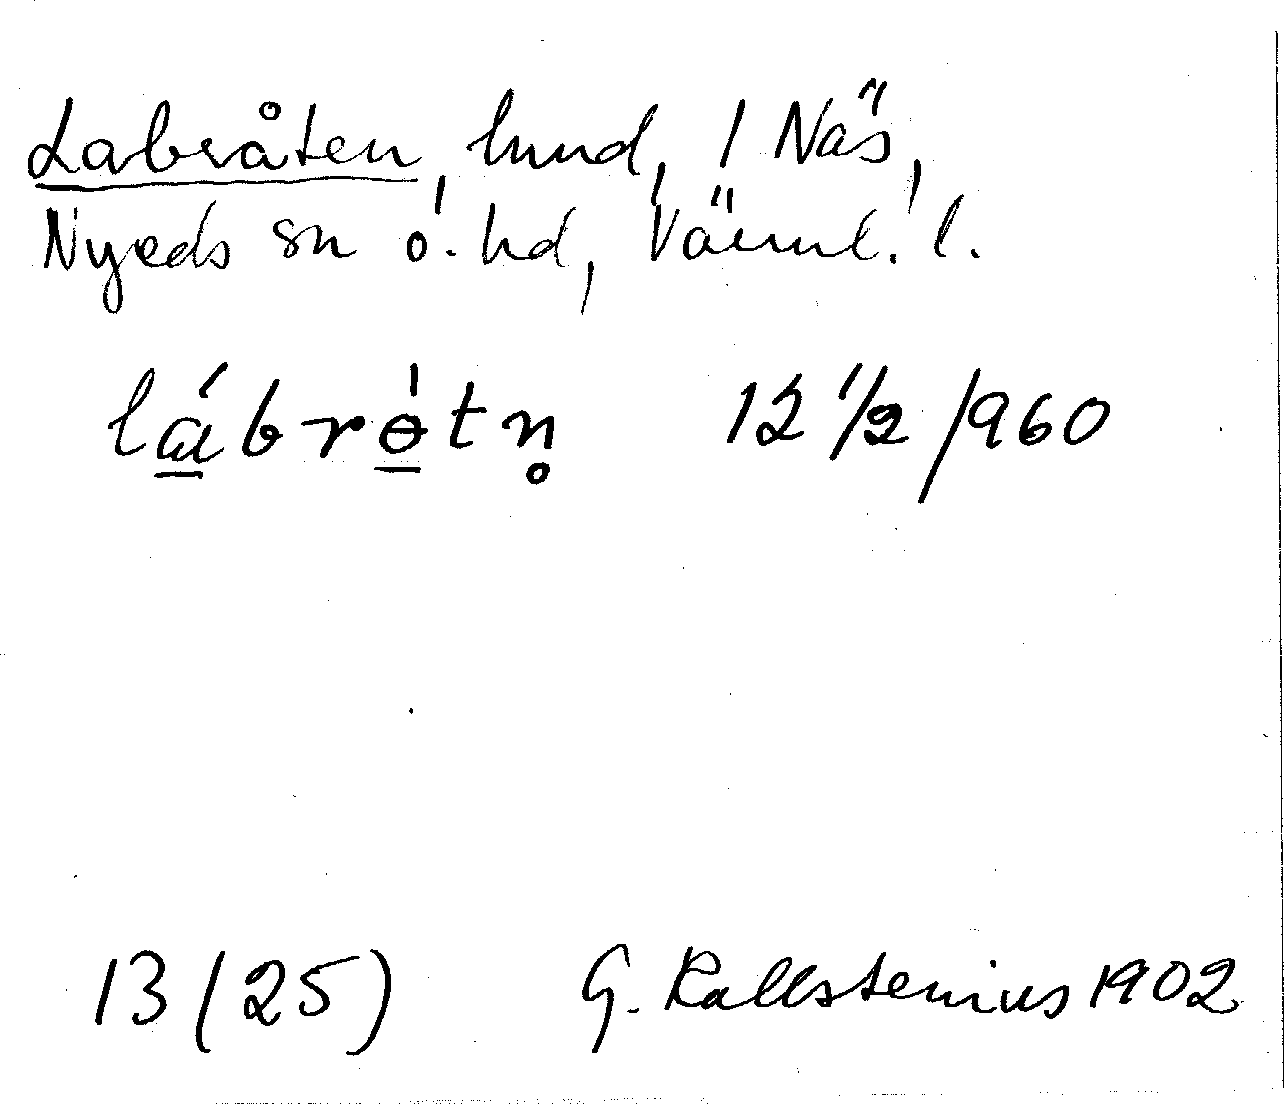 Labråten, lund, 1 Näs,
Nyeds sn ö. hd, Värml. l.
lábrɵ́tn̥ 12 1/2 /960
13 (25) G. Kallstenius 1902